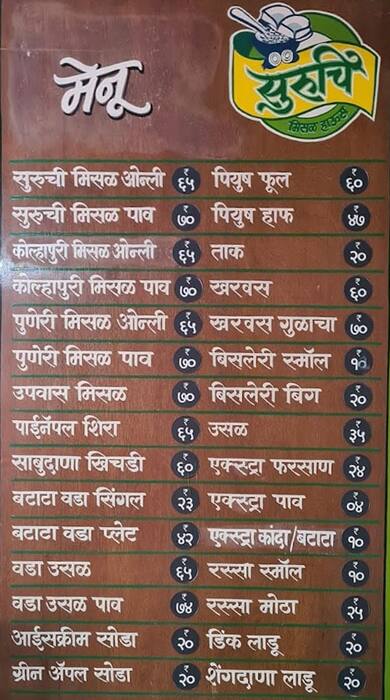 मेनू
सुरुचि
मिसळ हाऊस
सुरुची मिसळ ओन्ली ₹ ६५ पियुष फूल ₹ ६०
सुरुची मिसळ पाव ₹ ७० पियुष हाफ ₹ ४७
कोल्हापुरी मिसळ ओन्ली ₹ ६५ ताक ₹ २०
कोल्हापुरी मिसळ पाव ₹ ७० खरवस ₹ ६०
पुणेरी मिसळ ओन्ली ₹ ६५ खरवस गुळाचा ₹ ७०
पुणेरी मिसळ पाव ₹ ७० बिसलेरी स्मॉल ₹ १०
उपवास मिसळ ₹ ७० बिसलेरी बिग ₹ २०
पाईनॅपल शिरा ₹ ६५ उसळ ₹ ३५
साबुदाणा खिचडी ₹ ६० एक्स्ट्रा फरसाण ₹ २४
बटाटा वडा सिंगल ₹ २३ एक्स्ट्रा पाव ₹ ०४
बटाटा वडा प्लेट ₹ ४२ एक्स्ट्रा कांदा/बटाटा ₹ १०
वडा उसळ ₹ ६५ रस्सा स्मॉल ₹ १०
वडा उसळ पाव ₹ ७४ रस्सा मोठा ₹ २५
आईसक्रीम सोडा ₹ २० डिंक लाडू ₹ २०
ग्रीन ॲपल सोडा ₹ २० शेंगदाणा लाडू ₹ २०